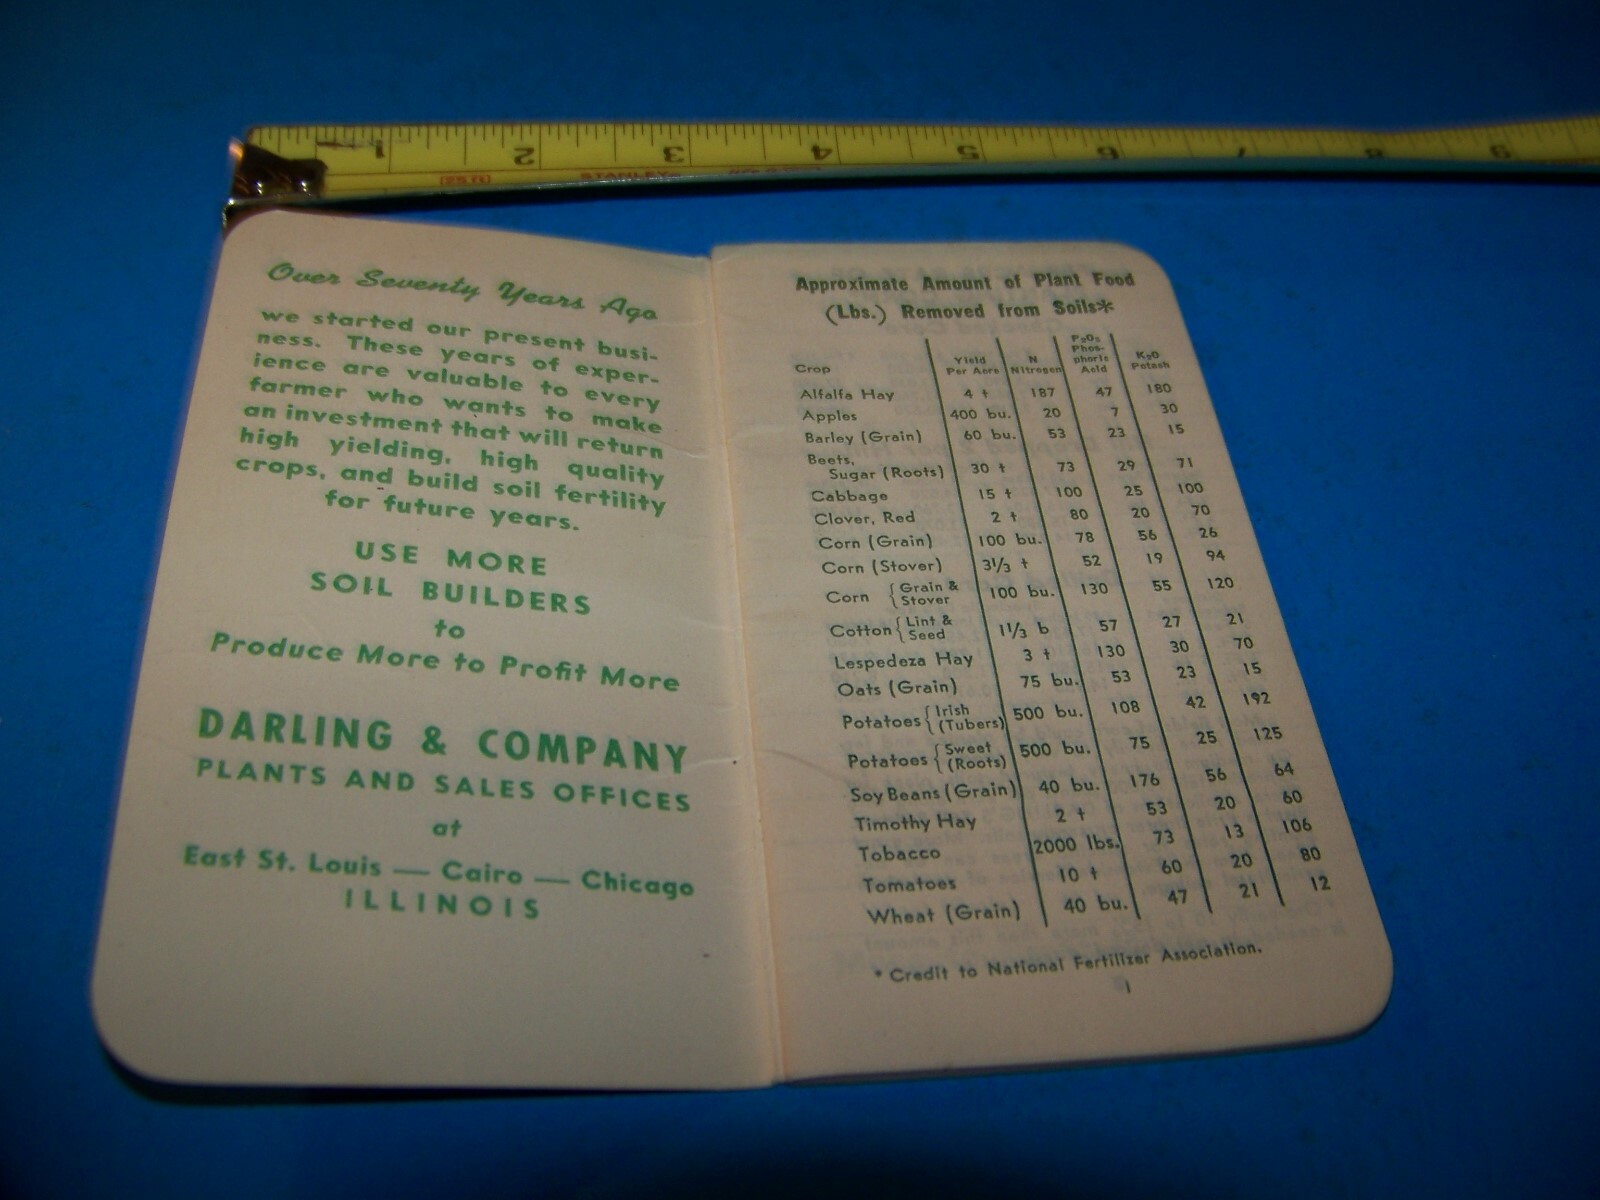 1 2 3 4 5 6 7 8 9
25 ft STANLEY
Over Seventy Years Ago
we started our present busi-
ness. These years of exper-
ience are valuable to every
farmer who wants to make
an investment that will return
high yielding, high quality
crops, and build soil fertility
for future years.
USE MORE
SOIL BUILDERS
to
Produce More to Profit More
DARLING & COMPANY
PLANTS AND SALES OFFICES
at
East St. Louis — Cairo — Chicago
ILLINOIS
Approximate Amount of Plant Food
(Lbs.) Removed from Soils*
Crop Yield Per Acre N Nitrogen P2O5 Phosphoric Acid K2O Potash
Alfalfa Hay 4 t 187 47 180
Apples 400 bu. 20 7 30
Barley (Grain) 60 bu. 53 23 15
Beets,
Sugar (Roots) 30 t 73 29 71
Cabbage 15 t 100 25 100
Clover, Red 2 t 80 20 70
Corn (Grain) 100 bu. 78 56 26
Corn (Stover) 3 1/3 t 52 19 94
Corn { Grain & Stover 100 bu. 130 55 120
Cotton { Lint & Seed 1 1/3 b 57 27 21
Lespedeza Hay 3 t 130 30 70
Oats (Grain) 75 bu. 53 23 15
Potatoes { Irish (Tubers) 500 bu. 108 42 192
Potatoes { Sweet (Roots) 500 bu. 75 25 125
Soy Beans (Grain) 40 bu. 176 56 64
Timothy Hay 2 t 53 20 60
Tobacco 2000 lbs. 73 13 106
Tomatoes 10 t 60 20 80
Wheat (Grain) 40 bu. 47 21 12
* Credit to National Fertilizer Association.
1